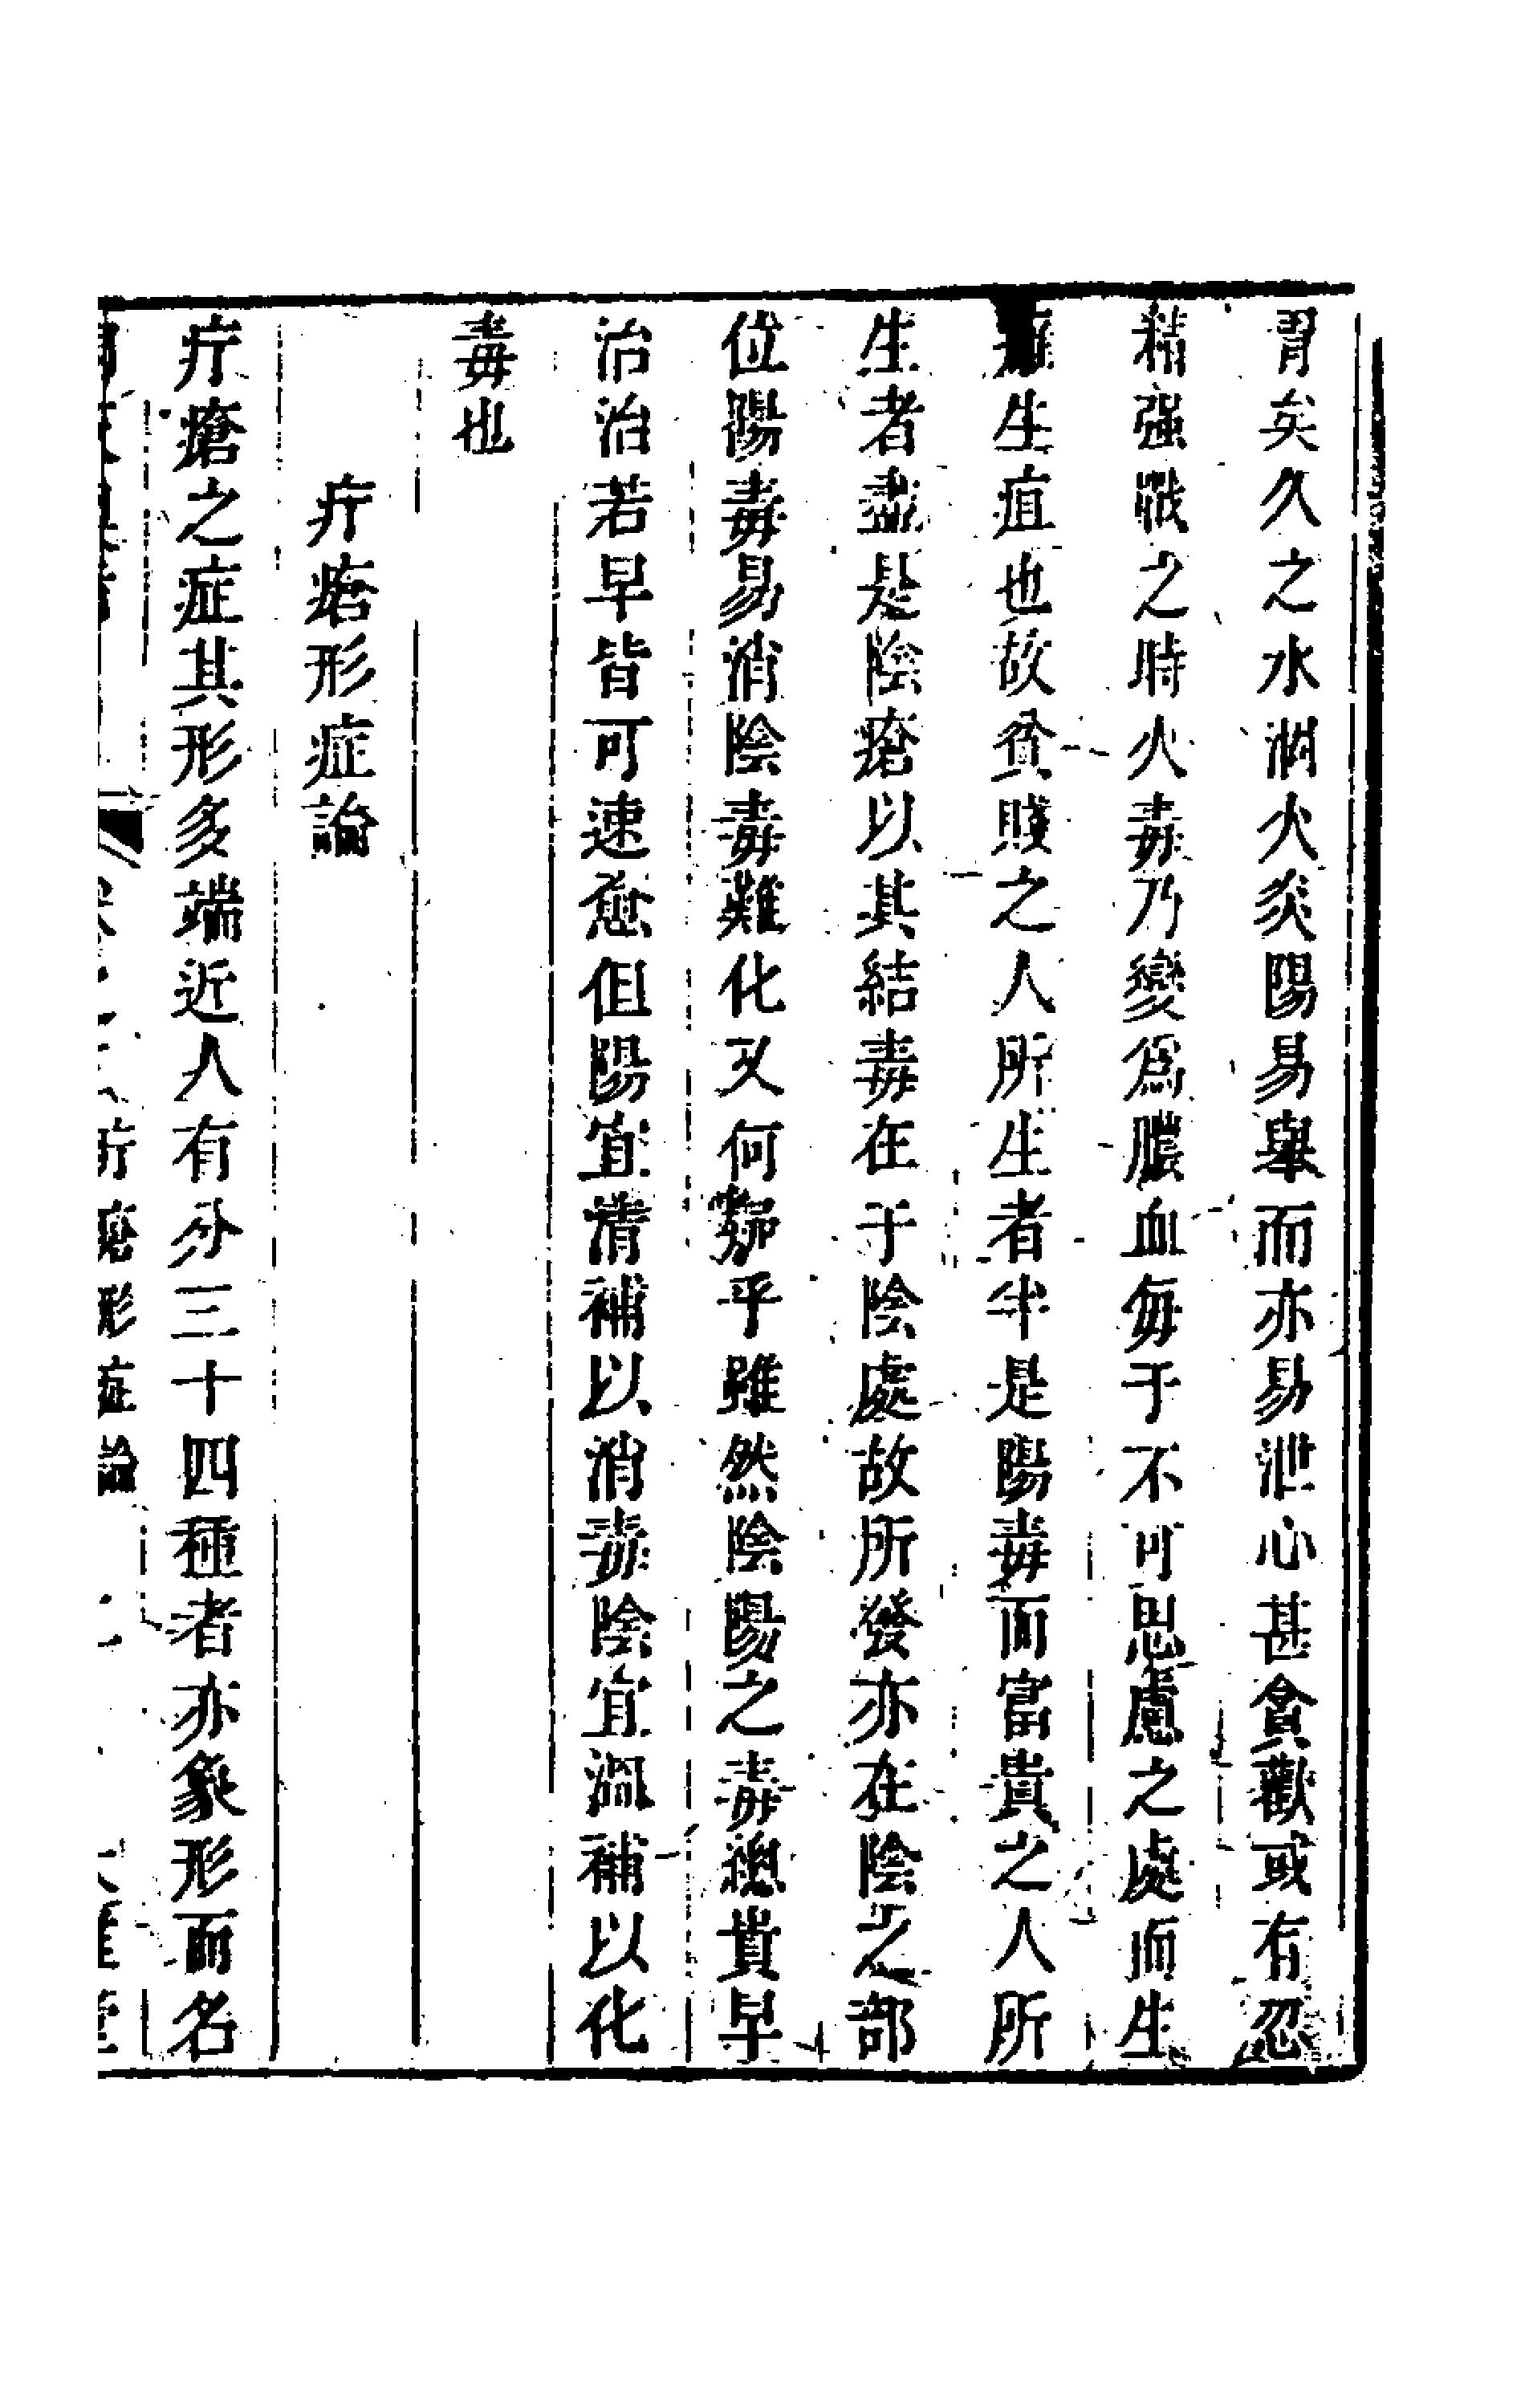 胃矣久之水涸火炎陽易舉而亦易泄心甚貪歡或有忍
精强戰之時火毒乃變為膿血每于不可思慮之處而生
生疽也故貧賤之人所生者半是陽毒而富貴之人所
生者盡是陰瘡以其結毒在于陰處故所發亦在陰之部
位陽毒易消陰毒難化又何疑乎雖然陰陽之毒總貴早
治治若早皆可速愈但陽宜清補以消毒陰宜温補以化
毒也
疔瘡形症論
疔瘡之症其形多端近人有分三十四種者亦象形而名
疔瘡形症論